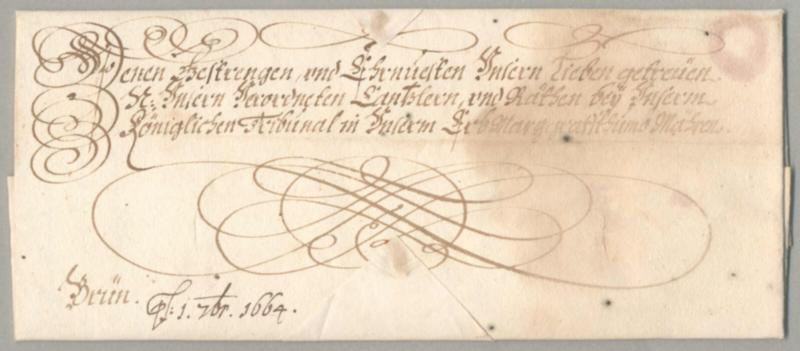 Denen Gestrengen, vnd Ehrnuesten Vnsern Lieben getreüen
N: Vnsern Verordneten Cantzlern, vnd Räthen beÿ Vnserm
Königlichen Tribunal in Vnserm Erb Marggraffthumb Mähren.
Brün.
1. 7br. 1664.